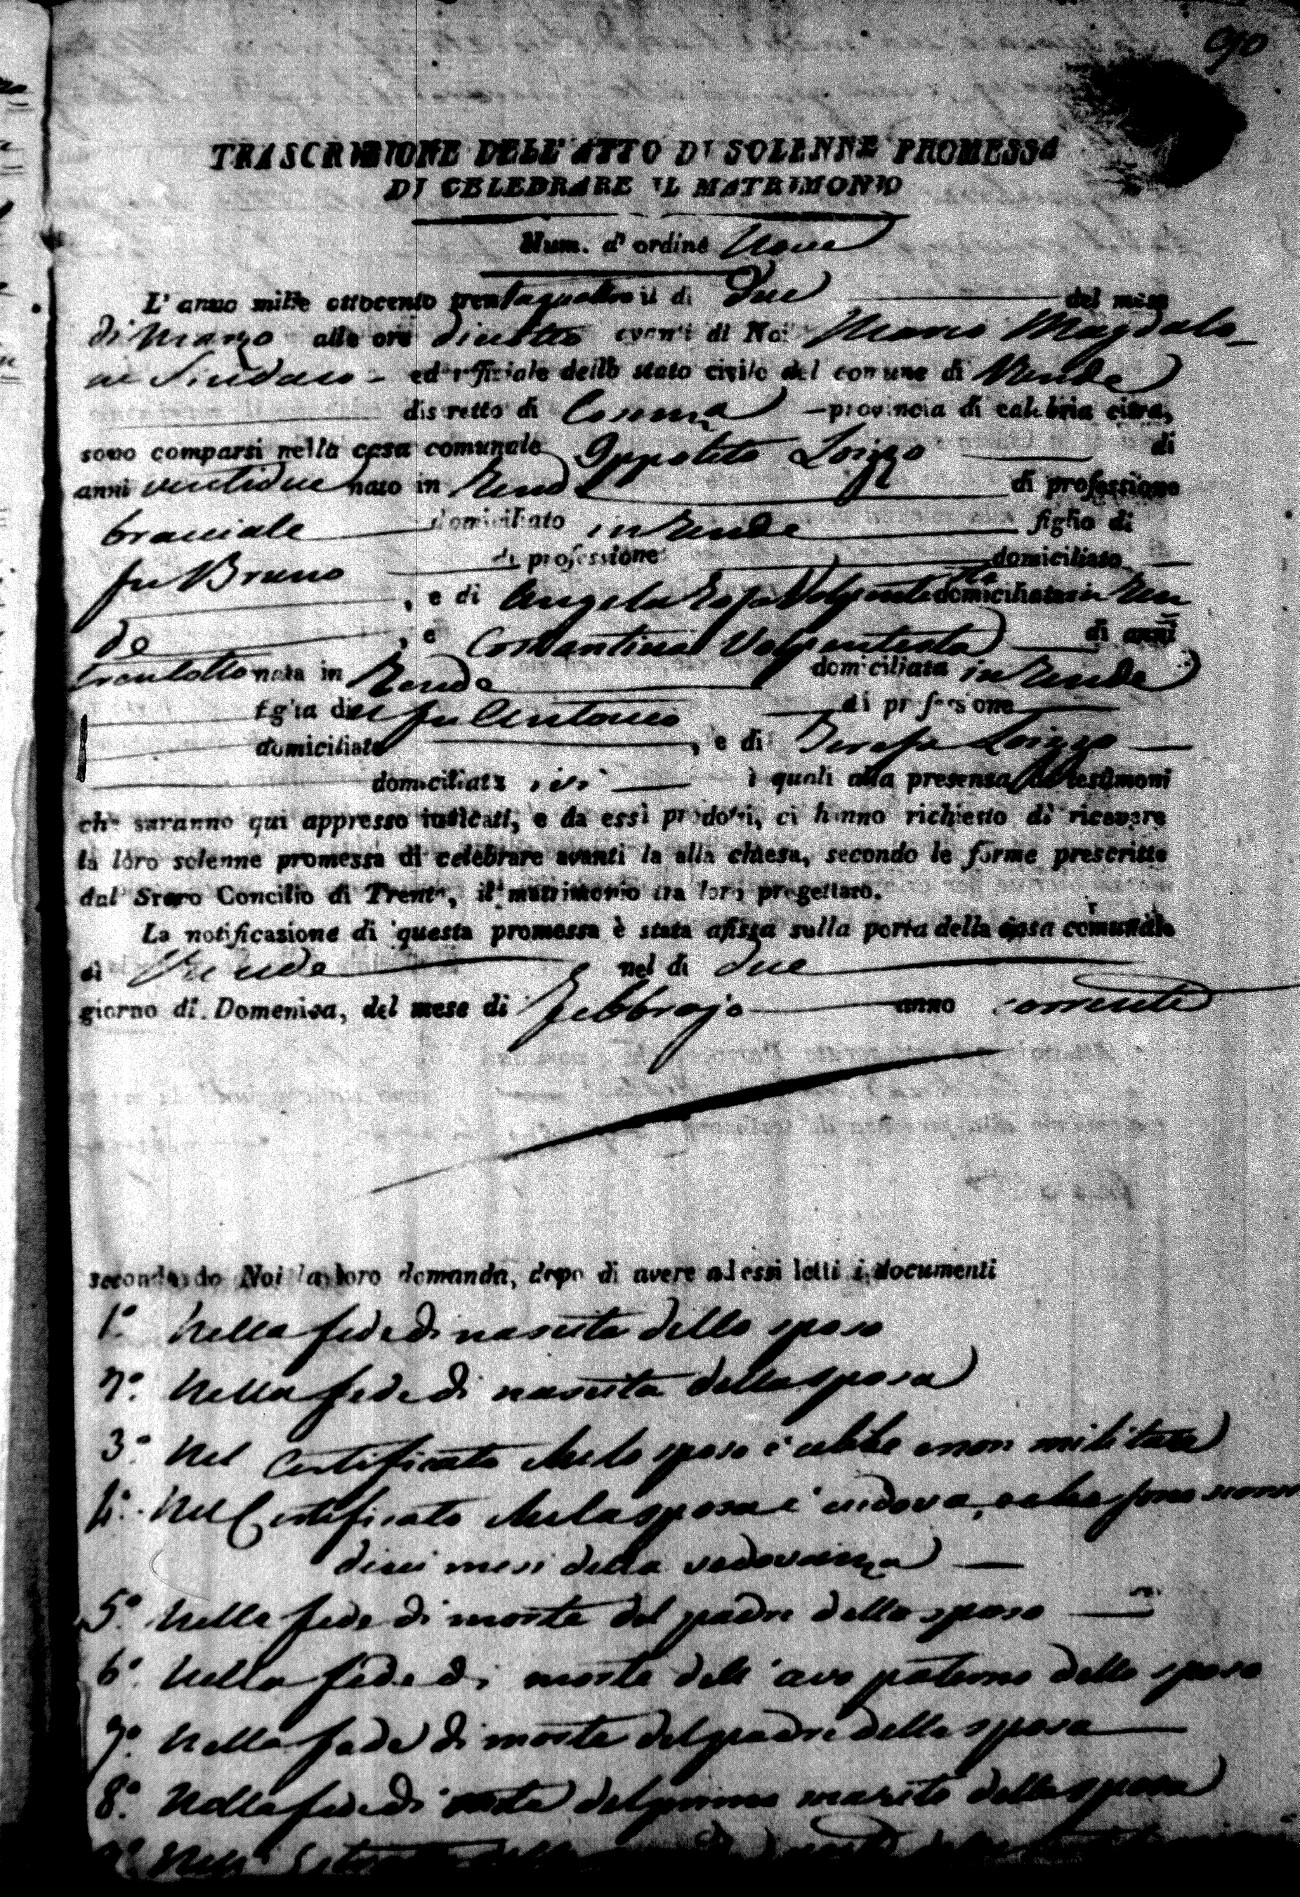 90
TRASCRIZIONE DELL'ATTO DI SOLENNE PROMESSA
DI CELEBRARE IL MATRIMONIO
Num. d' ordine Nove
L' anno mille ottocento trentaquattro il di due del mese
di Marzo alle ore dieciotto avanti di Noi Magdalo-
ne Sindaco ed uffiziale dello stato civile del comune di Rende
distretto di Cosenza provincia di calabria citra,
sono comparsi nella casa comunale Ippolito Loizzo di
anni ventidue nato in Rende di professione
bracciale domiciliato in Rende figlio di
fu Bruno di professione domiciliato
, e di Angela Rosa Volpentesta domiciliata in Ren
de , e Costantina Volpentesta di anni
trentotto nata in Rende domiciliata in Rende
figlia di fu Antonio di professione
domiciliato , e di Teresa Loizzo
domiciliata ivi i quali alla presenza de' testimoni
che saranno qui appresso indicati, e da essi prodotti, ci hanno richiesto di ricevere
la loro solenne promessa di celebrare avanti la alla chiesa, secondo le forme prescritte
dal Sacro Concilio di Trento, il matrimonio tra loro progettato.
La notificazione di questa promessa è stata afissa sulla porta della casa comunale
di Rende nel di due
giorno di Domenica, del mese di Febbrajo anno corrente
secondando Noi la loro domanda, dopo di avere ad essi letti i documenti
1.° Nella fede di nascita dello sposo
2.° Nella fede di nascita della sposa
3.° Nel Certificato che lo sposo è celibe e non militare
4.° Nel Certificato che la sposa è vedova, e che sono scorsi
dieci mesi della vedovanza
5.° Nella fede di morte del padre dello sposo
6.° Nella fede di morte dell' avo paterno dello sposo
7.° Nella fede di morte del padre della sposa
8.° Nella fede di morte del primo marito della sposa